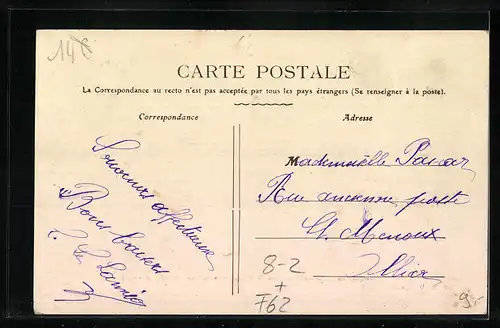 14 €
CARTE POSTALE
La Correspondance au recto n'est pas acceptée par tous les pays étrangers (Se renseigner à la poste).
Correspondance
Adresse
Souvenirs affectueux
Bons baisers
Mademoiselle
Rue ancienne poste
St. Menoux
Allier
8-2
+
F62
9,-